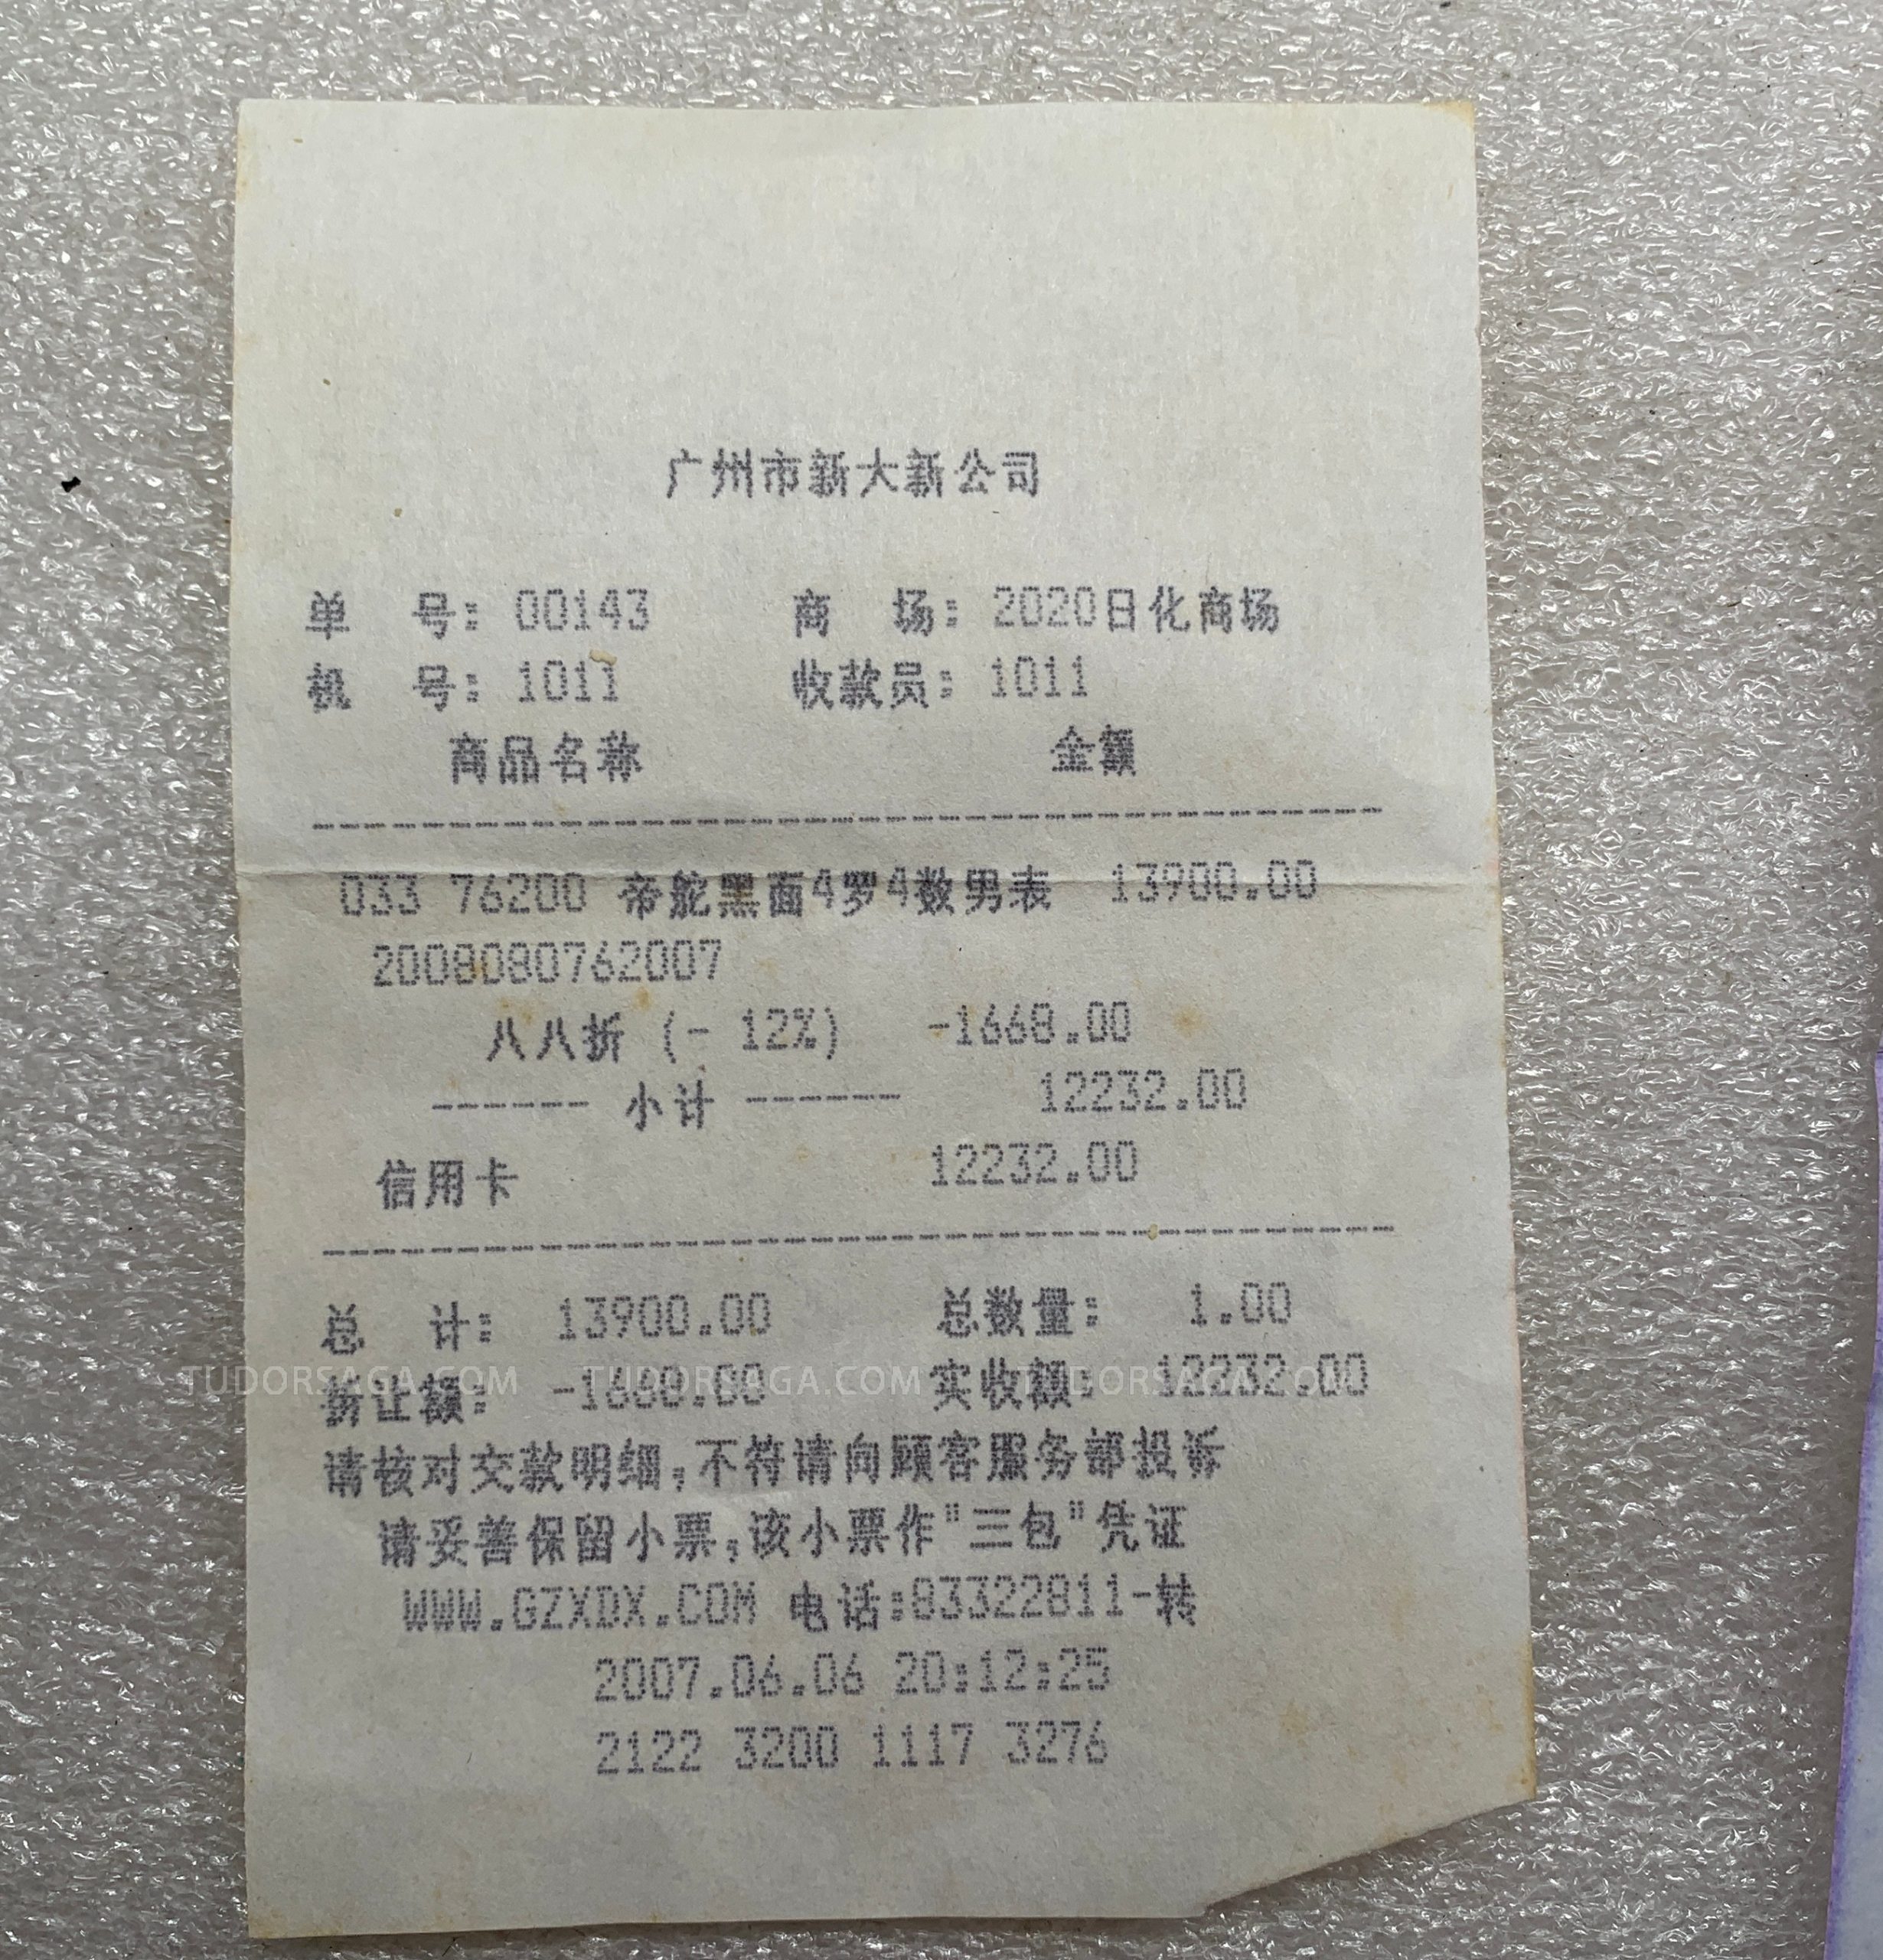 广州市新大新公司
单 号: 00143 商 场: 2020日化商场
机 号: 1011 收款员: 1011
商品名称 金额
033 76200 帝舵黑面4罗4数男表 13900.00
2008080762007
八八折 (- 12%) -1668.00
------ 小计 ------ 12232.00
信用卡 12232.00
总 计: 13900.00 总数量: 1.00
折让额: -1668.00 实收额: 12232.00
TUDORSAGA.COM TUDORSAGA.COM TUDORSAGA.COM
请核对交款明细,不符请向顾客服务部投诉
请妥善保留小票,该小票作"三包"凭证
WWW.GZXDX.COM 电话:83322811-转
2007.06.06 20:12:25
2122 3200 1117 3276